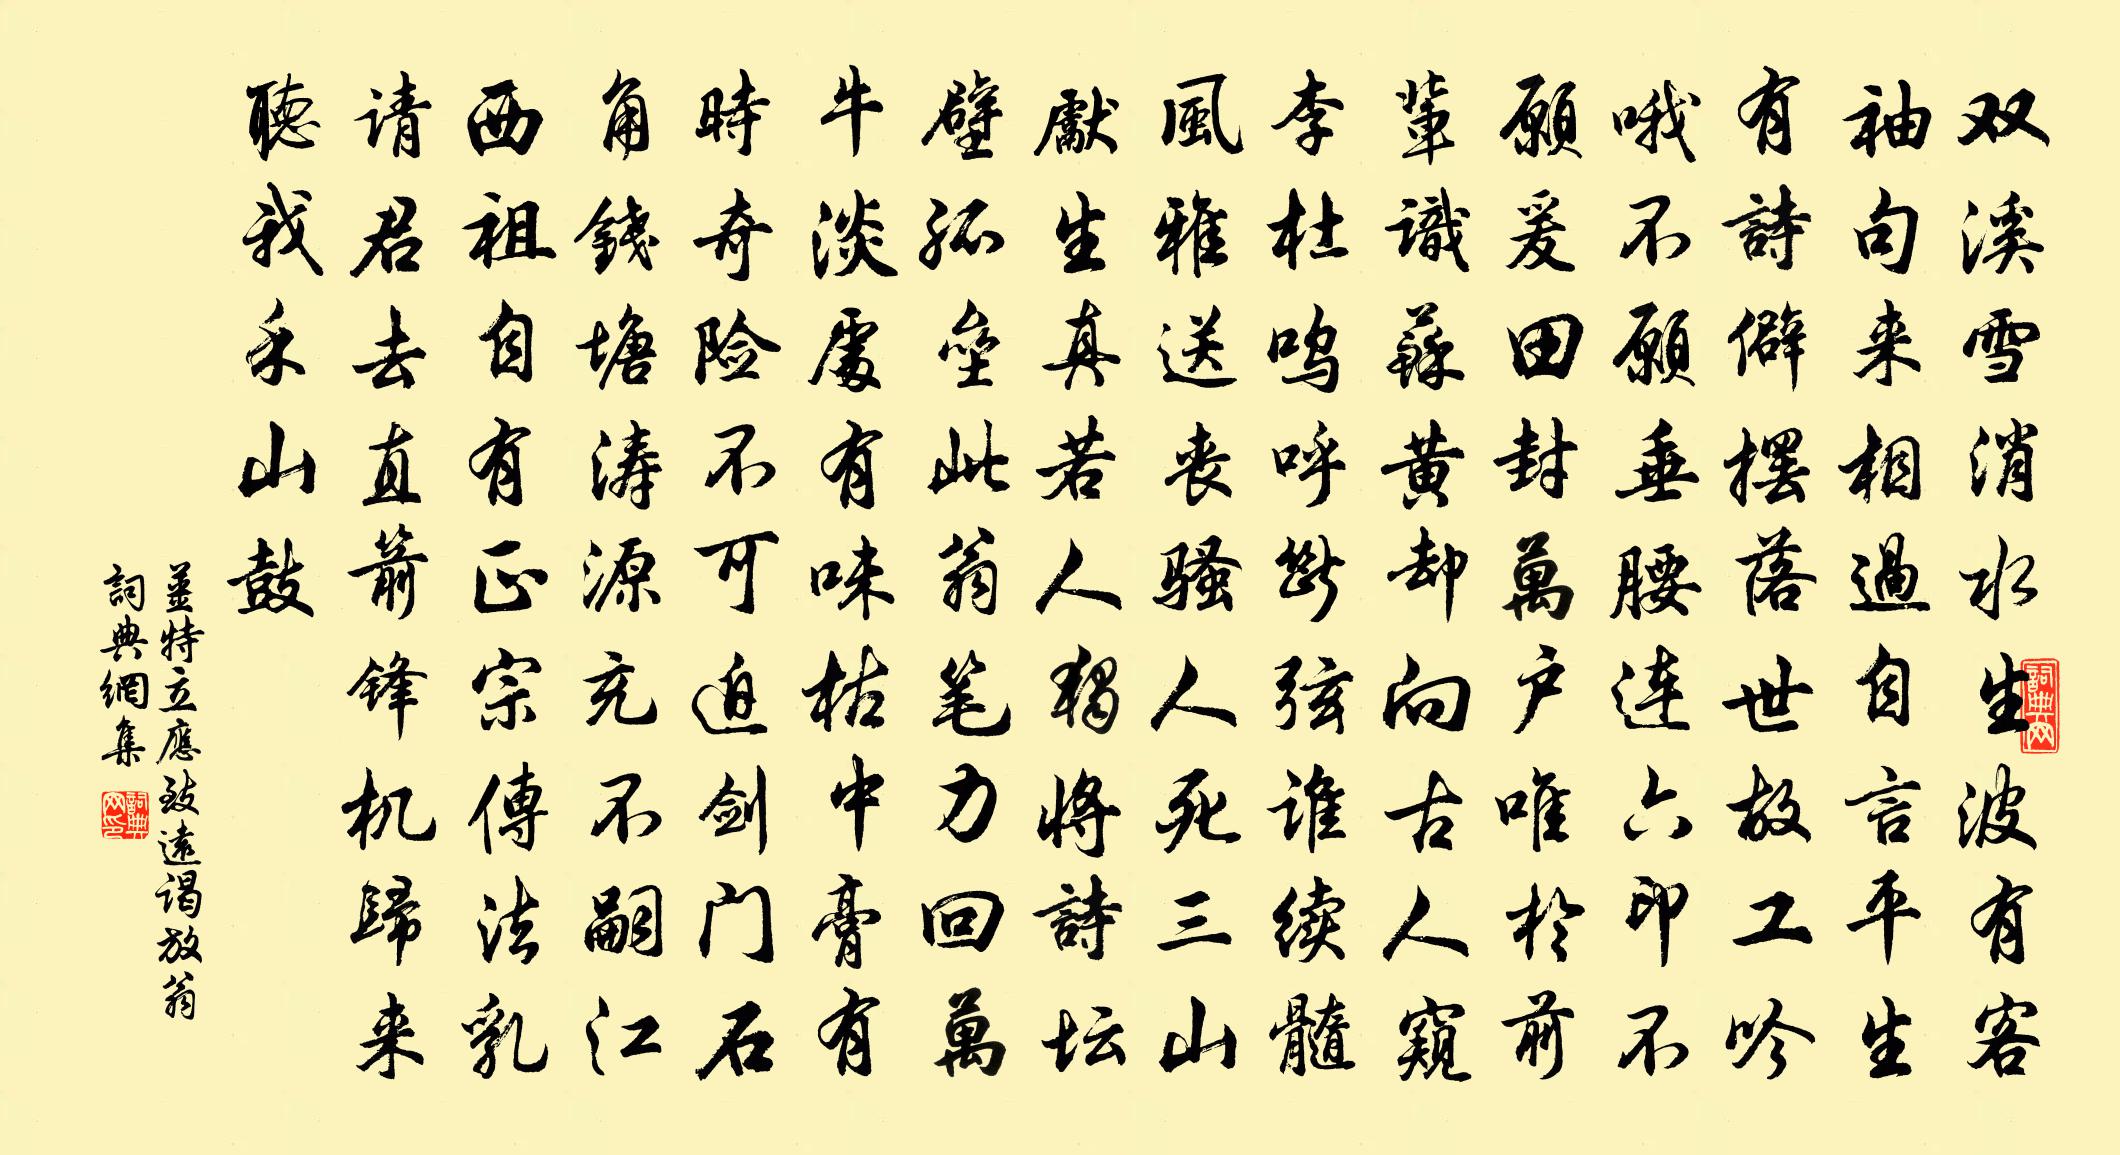 双溪雪消水生波有客
袖句来相過自言平生
有詩僻摆落世故工吟
哦不願垂腰連六印不
願爰田封萬户唯於前
輩識蘇黄却向古人窺
李杜呜呼斷弦谁续髓
風雅送丧骚人死三山
獻生真若人獨将詩坛
壁孤壘此翁笔力回萬
牛淡處有味枯中膏有
時奇险不可迫剑门石
角錢塘涛源充不嗣江
西祖自有正宗傳法乳
请君去直箭锋机歸来
聽我禾山鼓
姜特立應致遠谒放翁
詞典網集
詞典网
詞典网印